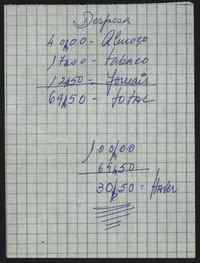 Despesa
40,00 - Almoço
17,00 - tabaco
12,50 - jornais
69,50 - total
100,00
69,50
30,50 =